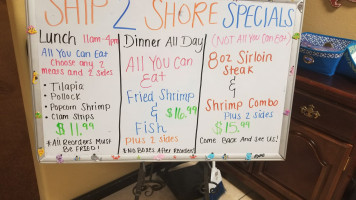 SHIP 2 SHORE SPECIALS
Lunch 11am-4pm
All You Can Eat
Choose any 2
means and 2 sides
• Tilapia
• Pollock
• Popcorn Shrimp
• Clam Strips
$11.99
* All Reorders Must
Be FRIED!
Dinner All Day
All You Can
Eat
Fried Shrimp
& $16.99
Fish
Plus 2 sides
* No Boxes After Reorder!
(Not All You Can Eat)
8oz Sirloin
Steak
&
Shrimp Combo
Plus 2 sides
$15.99
Come Back And See Us!